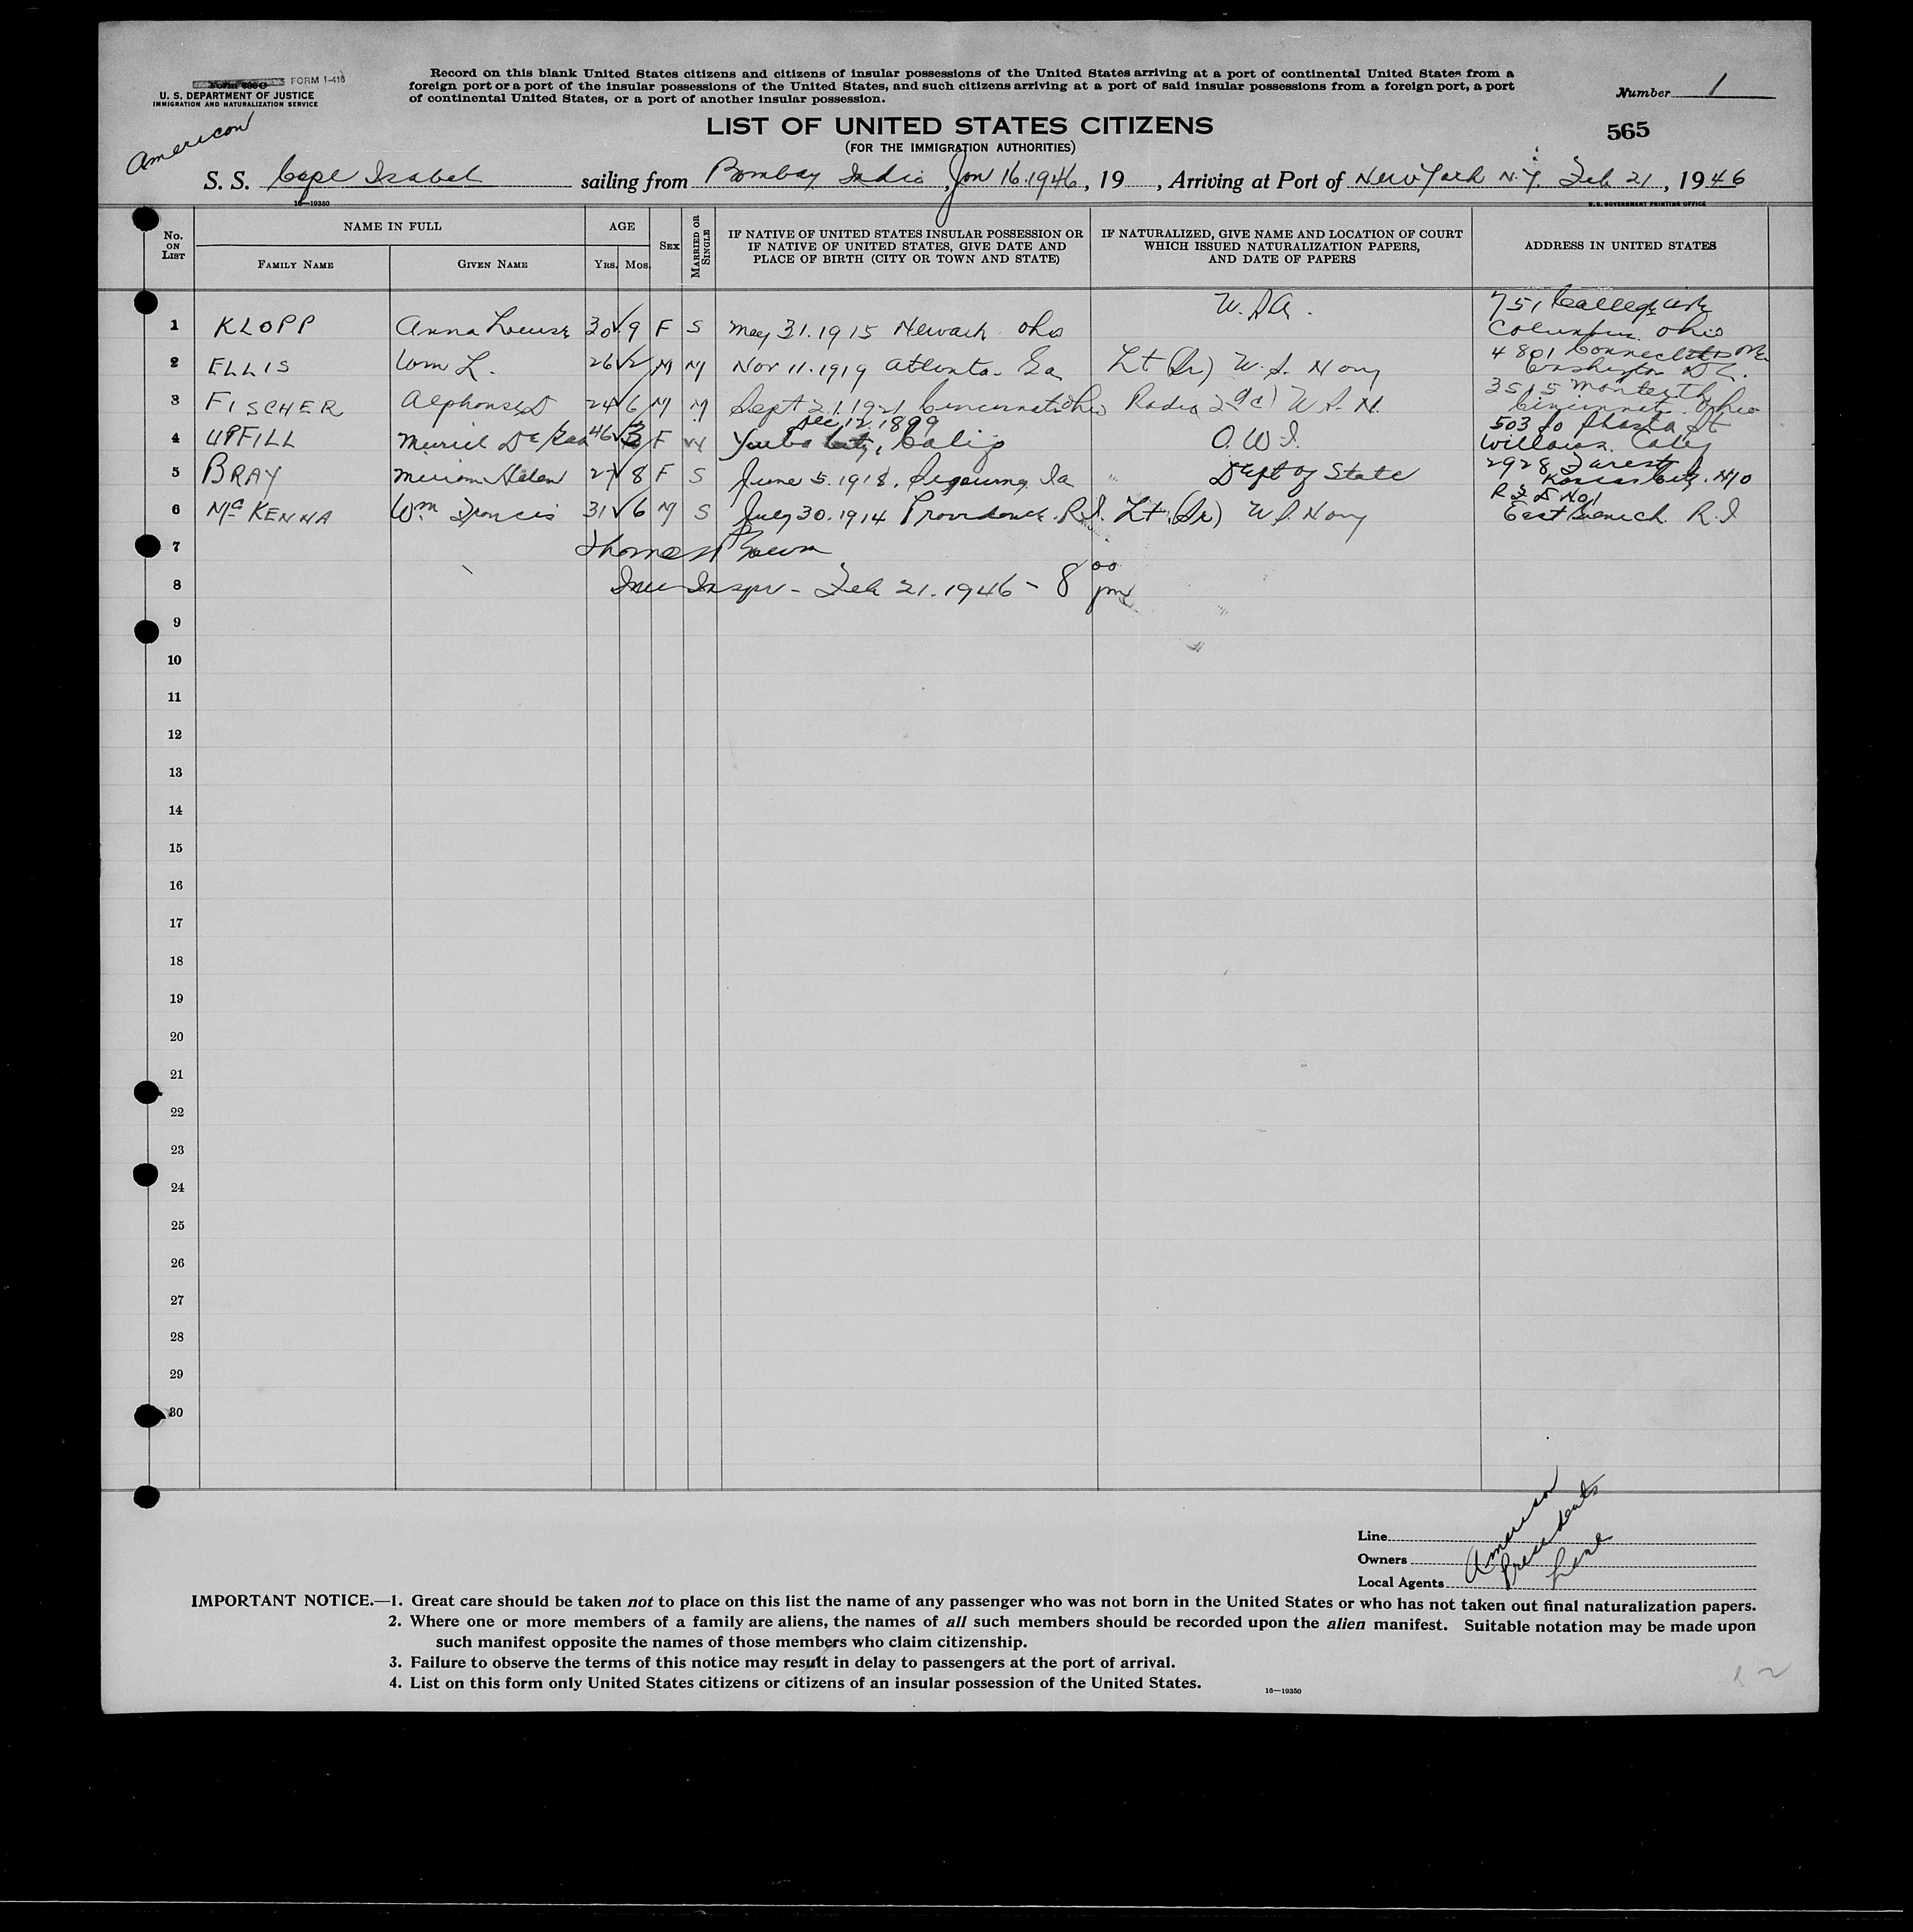 FORM I-416
U. S. DEPARTMENT OF JUSTICE
IMMIGRATION AND NATURALIZATION SERVICE
Record on this blank United States citizens and citizens of insular possessions of the United States arriving at a port of continental United States from a
foreign port or a port of the insular possessions of the United States, and such citizens arriving at a port of said insular possessions from a foreign port, a port
of continental United States, or a port of another insular possession.
Number 1
American
LIST OF UNITED STATES CITIZENS
565
(FOR THE IMMIGRATION AUTHORITIES)
S. S. Cape Isabel sailing from Bombay India, Jan 16.1946, 19 , Arriving at Port of New York N.Y. Feb 21, 1946
16—19350
U. S. GOVERNMENT PRINTING OFFICE
No. ON LIST
NAME IN FULL
FAMILY NAME
GIVEN NAME
AGE
YRS. MOS.
SEX
MARRIED OR SINGLE
IF NATIVE OF UNITED STATES INSULAR POSSESSION OR
IF NATIVE OF UNITED STATES, GIVE DATE AND
PLACE OF BIRTH (CITY OR TOWN AND STATE)
IF NATURALIZED, GIVE NAME AND LOCATION OF COURT
WHICH ISSUED NATURALIZATION PAPERS,
AND DATE OF PAPERS
ADDRESS IN UNITED STATES
751
1 KLOPP Anna Louise 30 9 F S May 31.1915 Newark Ohio Columbus Ohio
4801 Connecticut Ave
2 ELLIS Wm L. 26 2 M M Nov 11.1919 Atlanta Ga Lt (Sr) U. S. Navy Washington D.C.
3515 Monteith
3 FISCHER Alphonse D 24 6 M M Sept 21.1921 Cincinnati Ohio Radio U. S. N. Cincinnati Ohio
Dec 12 1899
503 So Shasta St
4 UPFILL Muriel 46 F Yuba City, Calif O. W. I. Willows Calif
2928 Forest
5 BRAY Miriam Helen 27 8 F S June 5.1918. Ia Dept of State Kansas City. MO
R F D No 1
6 McKENNA Wm Francis 31 6 M S July 30.1914 Providence. R.I. Lt (Sr) U. S. Navy East R.I
7 Thomas
8 Feb 21.1946 - 8 00 pm
9
10
11
12
13
14
15
16
17
18
19
20
21
22
23
24
25
26
27
28
29
30
Line
Owners
Local Agents
American
Presidents
Line
IMPORTANT NOTICE.—1. Great care should be taken not to place on this list the name of any passenger who was not born in the United States or who has not taken out final naturalization papers.
2. Where one or more members of a family are aliens, the names of all such members should be recorded upon the alien manifest. Suitable notation may be made upon
such manifest opposite the names of those members who claim citizenship.
3. Failure to observe the terms of this notice may result in delay to passengers at the port of arrival.
4. List on this form only United States citizens or citizens of an insular possession of the United States.
16—19350